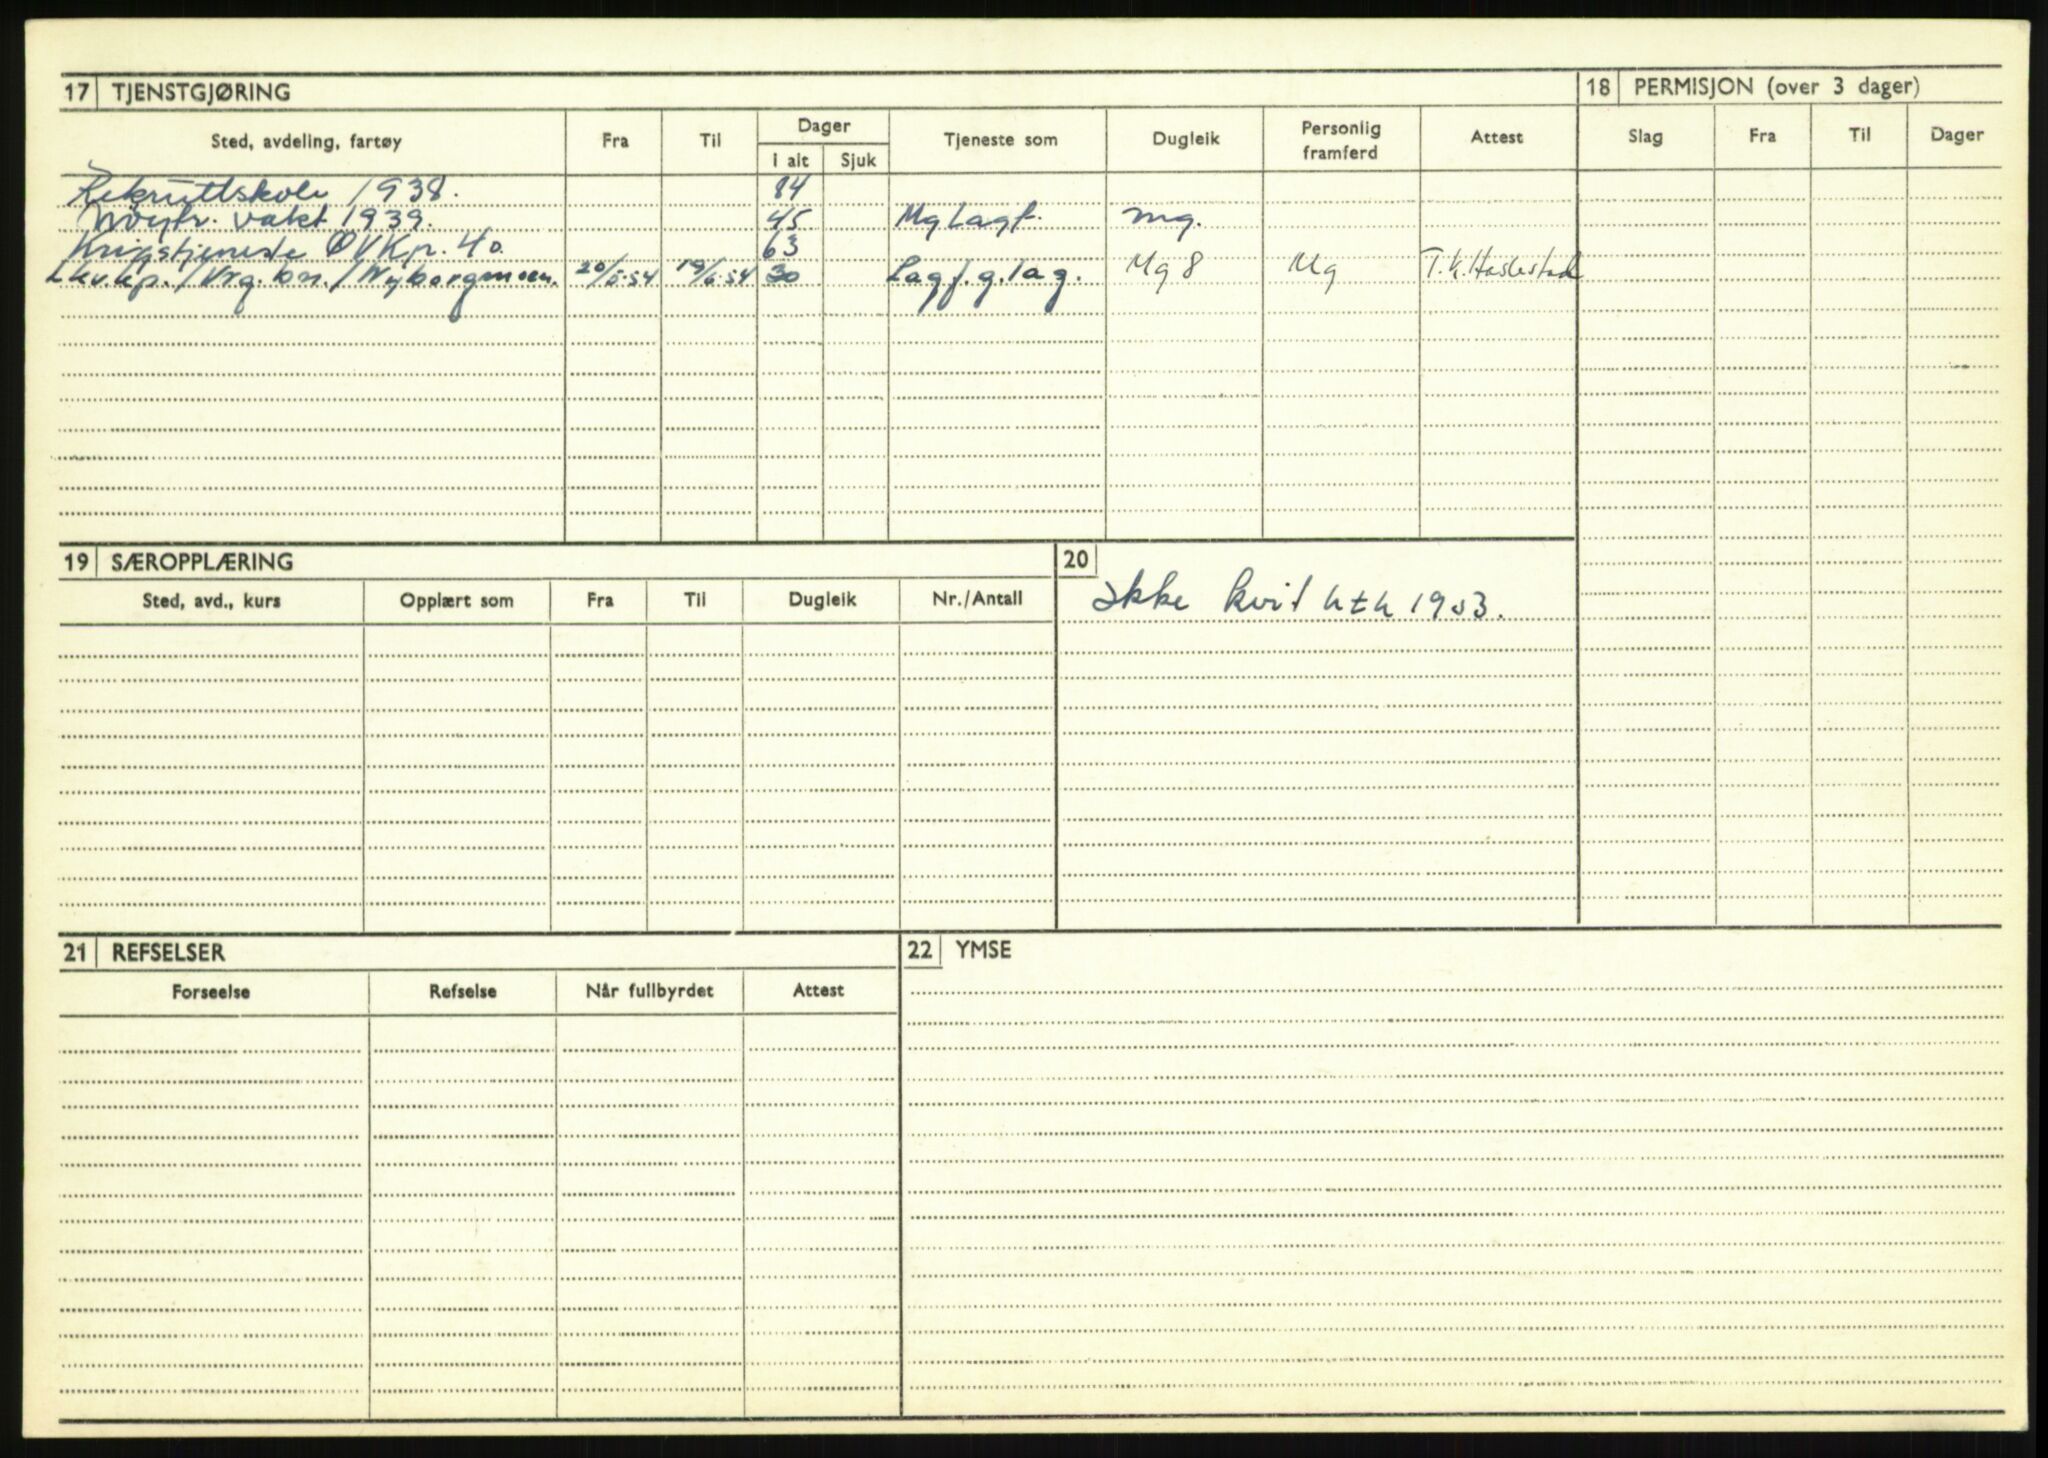 17 TJENSTGJØRING
18 PERMISJON (over 3 dager)
Sted, avdeling, fartøy Fra Til Dager Tjeneste som Dugleik Personlig framferd Attest Slag Fra Til Dager
I alt Sjuk
Rekruttskole 1938. 84
Nøytr. vakt 1939. 45 Mg Lagf. mg.
Krigstjeneste ØVKp. 40. 63
Lkv.kp./Vrg.bn./Nyborgmoen. 20/5-54 19/6-54 30 Lagf.g.lag. Mg 8 Mg T.K.Haslestad
19 SÆROPPLÆRING
20
Sted, avd., kurs Opplært som Fra Til Dugleik Nr./Antall
Ikke kvit h t h 1953.
21 REFSELSER
22 YMSE
Forseelse Refselse Når fullbyrdet Attest